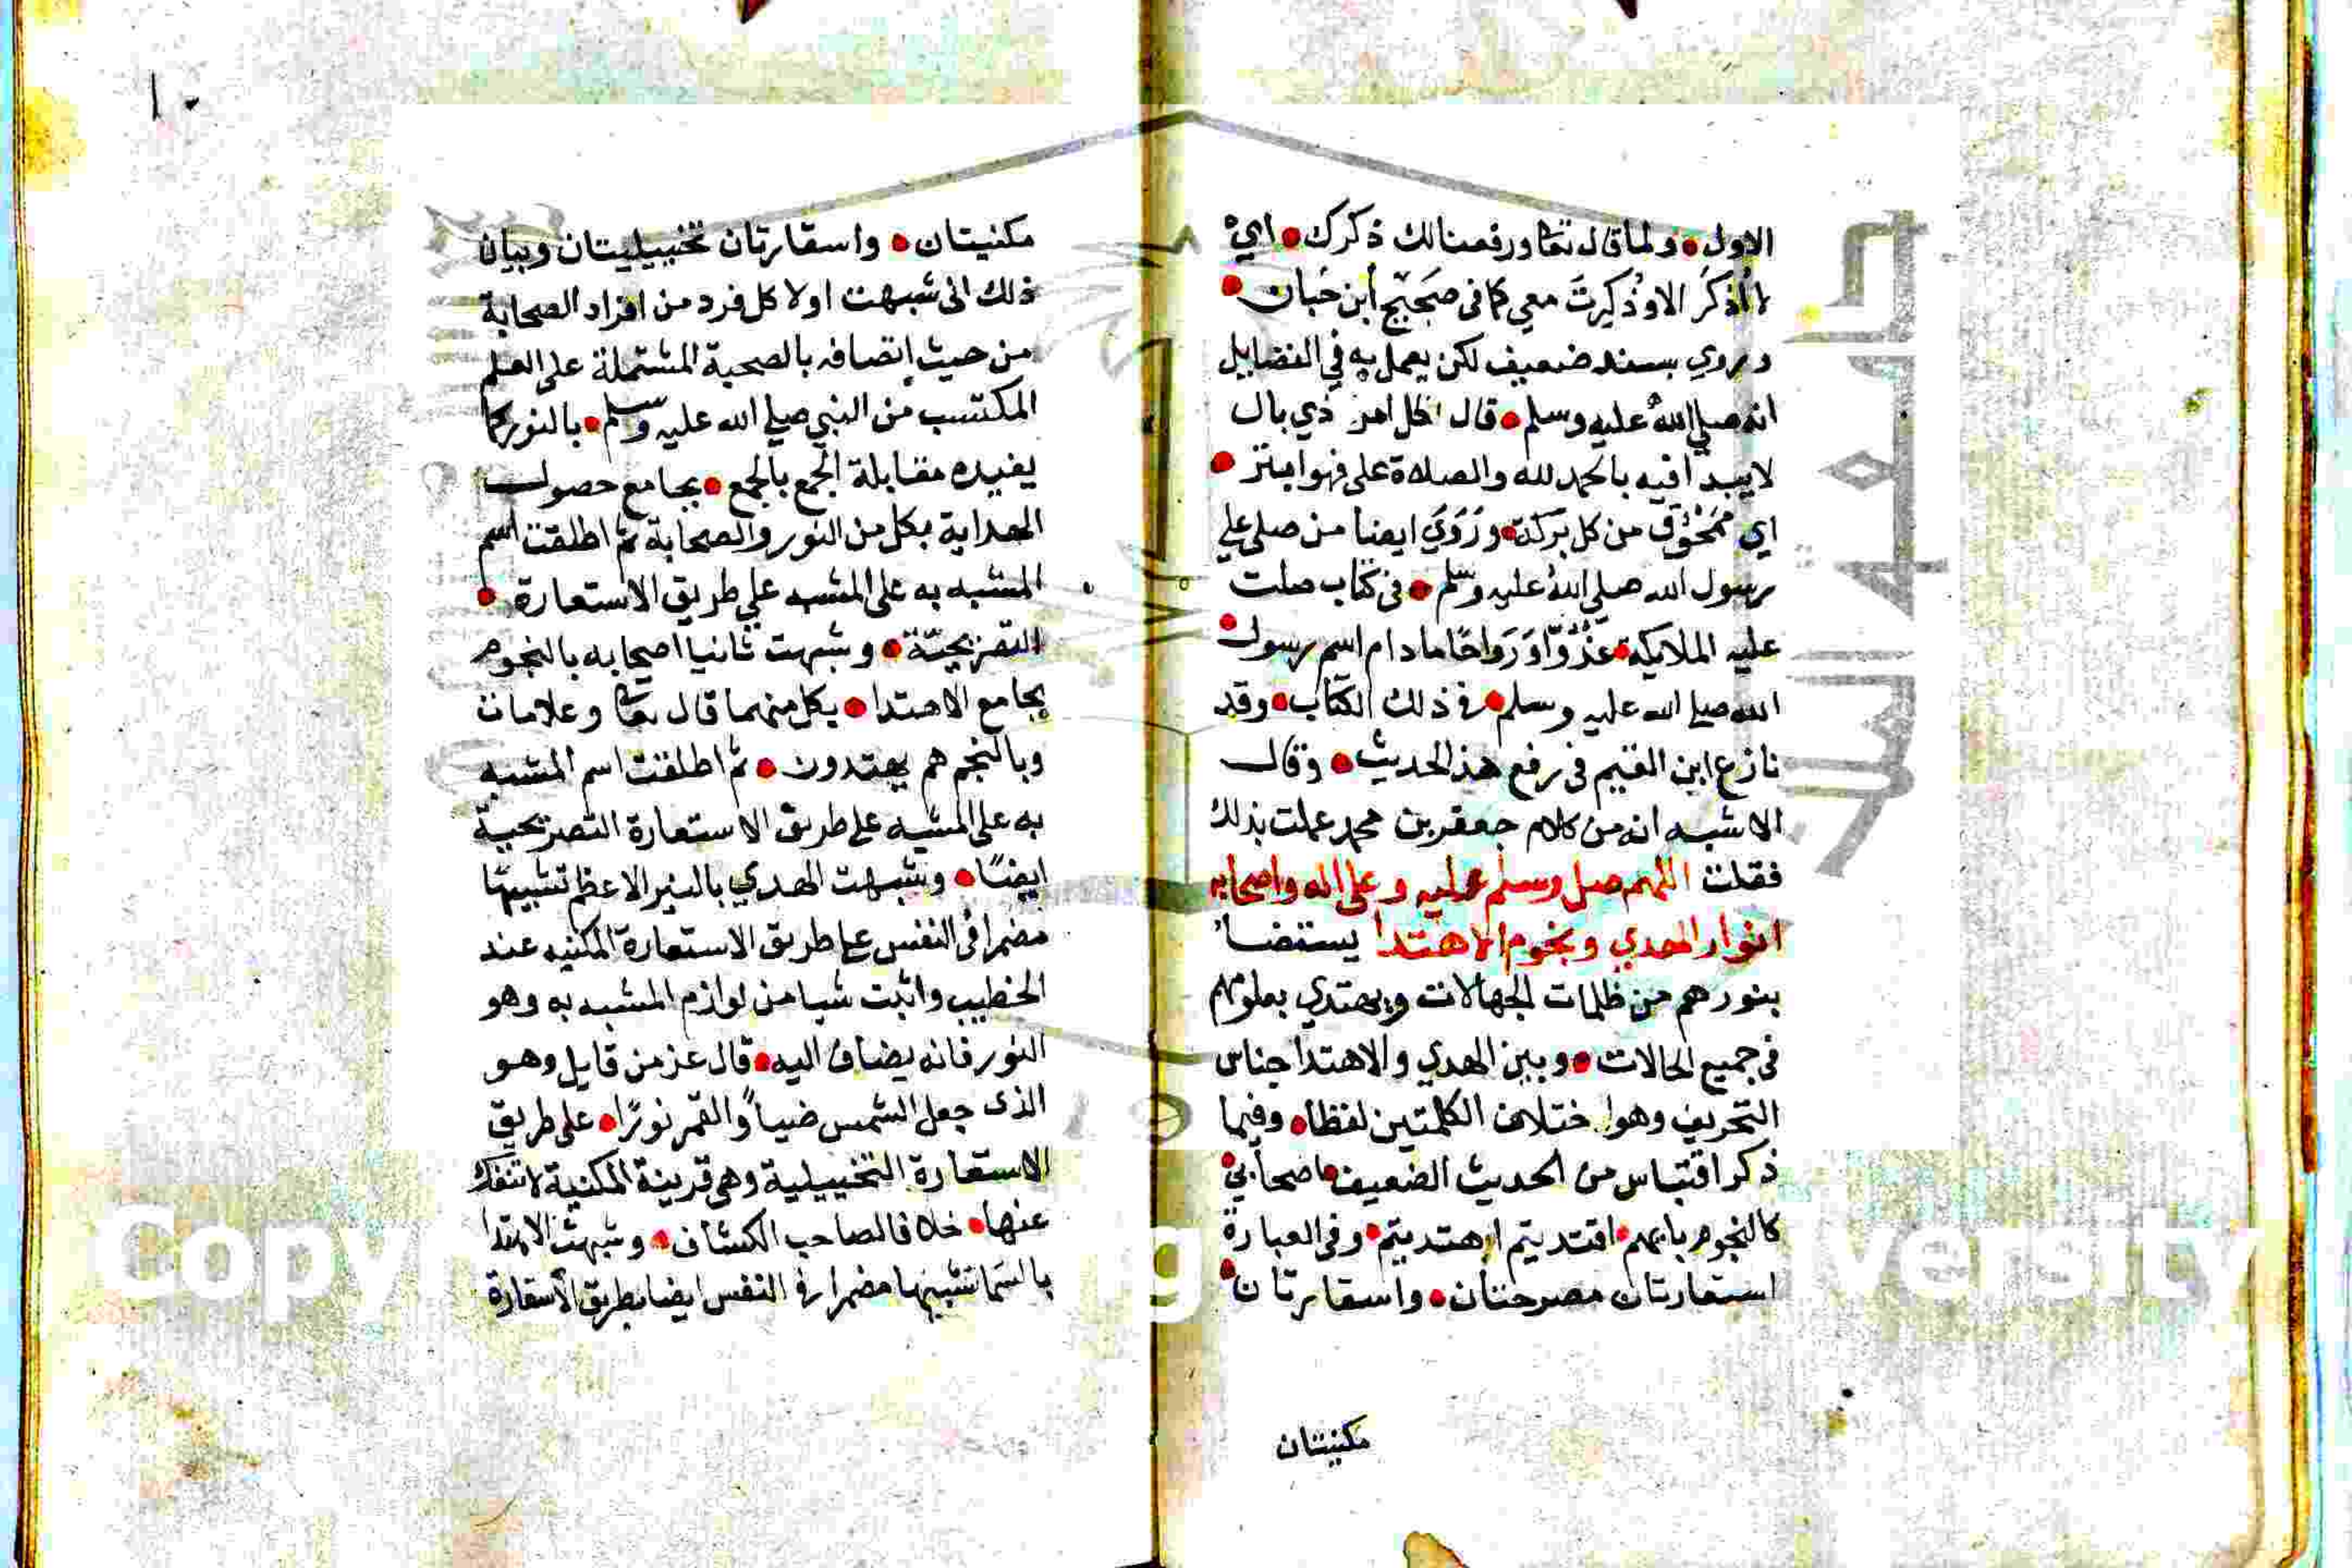 الاول • ولما قال تعا ورفعنا لك ذكرك • اي
لا أذكر الا وذكرت معي كما فى صحيح ابن حبان •
وروي بسند ضعيف لكن يعمل به في الفضايل
انه صلي الله عليه وسلم • قال كل امر ذي بال
لا يبدأ فيه بالحمد لله والصلاة على فهو ابتر •
اي ممحوق من كل بركة • وروي ايضا من صلى علي
رسول الله صلي الله عليه وسلم • فى كتاب صلت
عليه الملايكة • غدوا ورواحا ما دام اسم رسول •
الله صلي الله عليه وسلم • فى ذلك الكتاب • وقد
نازع ابن القيم فى رفع هذ الحديث • وقال
الاشبه انه من كلام جعفر بن محمد عملت بذلك
فقلت اللهم صل وسلم عليه وعلى اله واصحابه
انوار الهدي ونجوم الاهتدا يستضا
بنورهم من ظلمات الجهالات ويهتدي بعلومهم
فى جميع الحالات • وبين الهدي والاهتدا جناس
التحريف وهو اختلاف الكلمتين لفظا • وفيما
ذكر اقتباس من الحديث الضعيف • اصحابي •
كالنجوم بايهم • اقتديتم اهتديتم • وفى العبارة
استعارتان مصرحتان • واستعارتان •
مكنيتان
١٠
مكنيتان • واستعارتان تخييليتان وبيان
ذلك انى شبهت اولا كل فرد من افراد الصحابة
من حيث اتصافه بالصحبة المشتملة على العلم
المكتسب من النبي صلي الله عليه وسلم • بالنور كما
يفيده مقابلة الجمع بالجمع • بجامع حصول
الهداية بكل من النور والصحابة ثم اطلقت اسم
المشبه به على المشبه علي طريق الاستعارة •
التصريحية • وشبهت ثانيا اصحابه بالنجوم
بجامع الاهتدا • بكل منهما قال تعا وعلامات
وبالنجم هم يهتدون • ثم اطلقت اسم المشبه
به على المشبه على طريق الاستعارة التصريحية
ايضا • وشبهت الهدي بالنير الاعظم تشبيها
مضمرا فى النفس على طريق الاستعارة المكنيه عند
الخطيب واثبت شيا من لوازم المشبه به وهو
النور فانه يضاف اليه • قال عز من قايل وهو
الذى جعل الشمس ضياً والقمر نورًا • على طريق
الاستعارة التخييلية وهى قرينة المكنية لا تنفك
عنها • خلافا لصاحب الكشاف • وشبهت الاهتدا
بالسما تشبيها مضمرا فى النفس ايضا بطريق الاستعارة